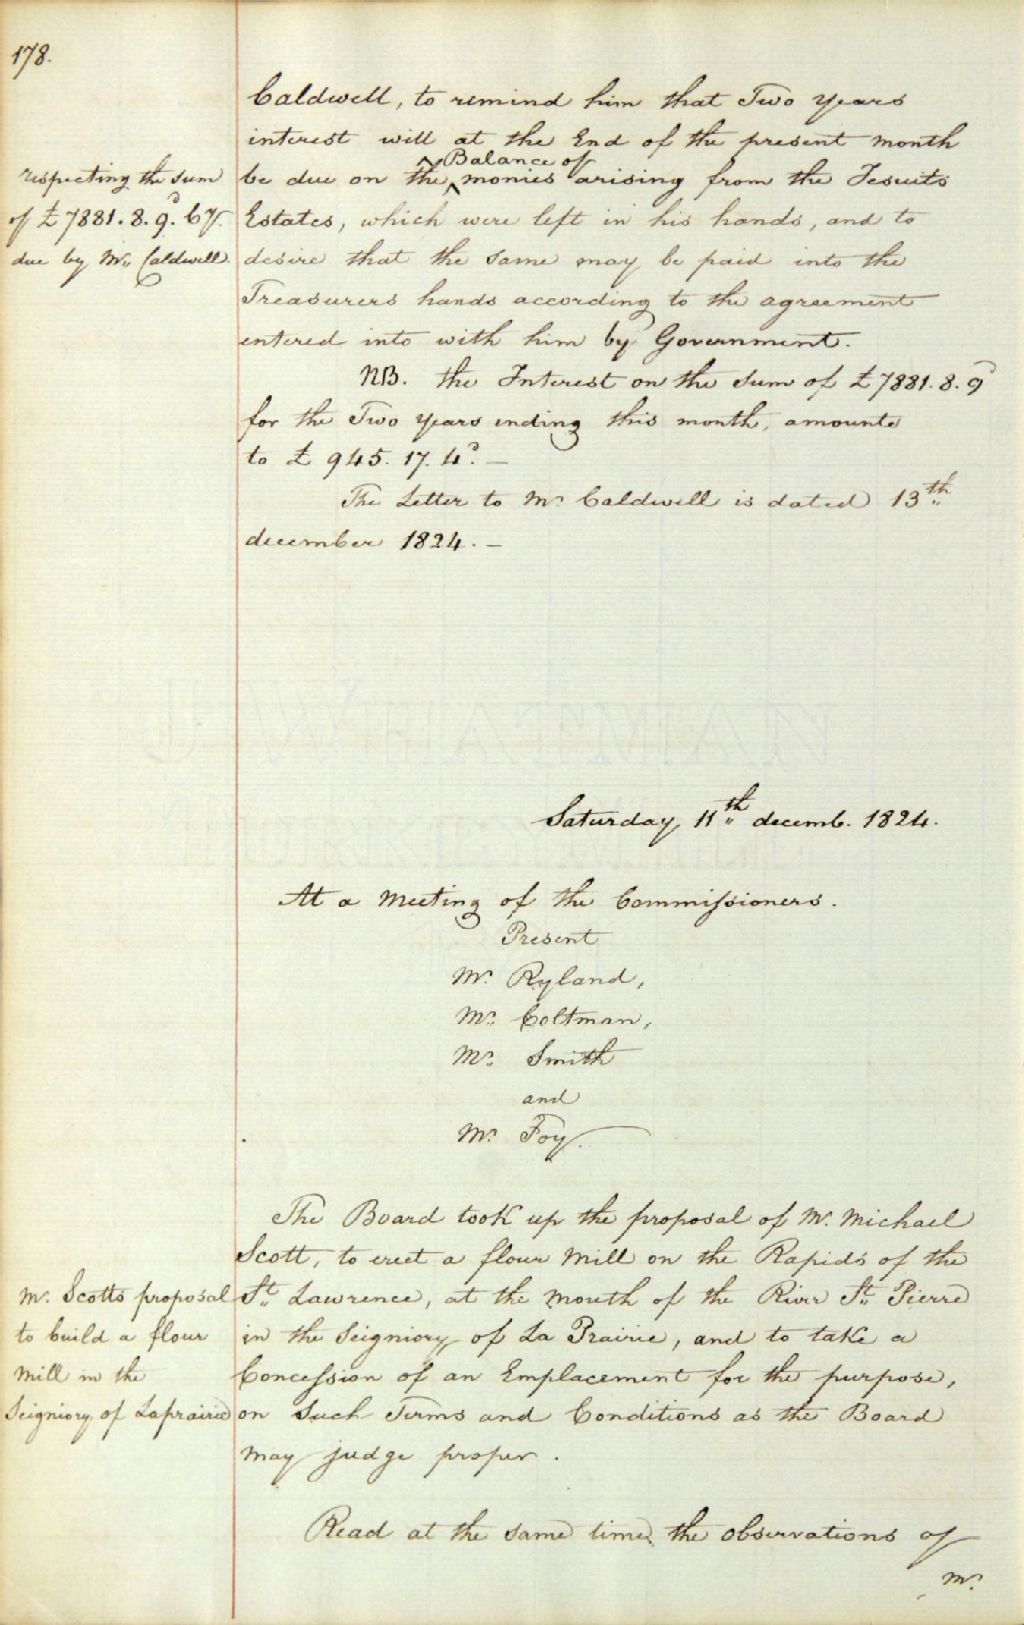 178.
Caldwell, to remind him that Two years
interest will at the End of the present month
Balance of
be due on the monies arising from the Jesuits
Estates, which were left in his hands, and to
desire that the same may be paid into the
Treasurers hands according to the agreement
entered into with him by Government.
respecting the sum
of £7881.8.9.d Cy.
due by Mr. Caldwell.
NB. the Interest on the sum of £7881.8.9d
for the Two years ending this month, amounts
to £945.17.4d. —
The Letter to Mr. Caldwell is dated 13th
december 1824. —
J WHATMAN
Saturday, 11th decemb. 1824.
At a Meeting of the Commissioners.
Present
Mr. Ryland,
Mr. Coltman,
Mr. Smith
and
Mr. Foy.
The Board took up the proposal of Mr. Michael
Scott, to erect a flour Mill on the Rapids of the
St. Lawrence, at the Mouth of the River St. Pierre
in the Seigniory of La Prairie, and to take a
Concession of an Emplacement for the purpose,
on Such Terms and Conditions as the Board
may judge proper.
Mr. Scotts proposal
to build a flour
Mill in the
Seigniory of Laprairie
Read at the same time, the observations of
Mr.